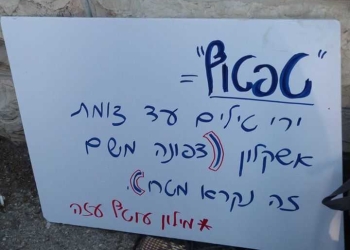 "טפטוף" =
ירי טילים עד צומת
אשקלון (צפונה משם
זה נקרא מטח).
*מילון עוטף עזה